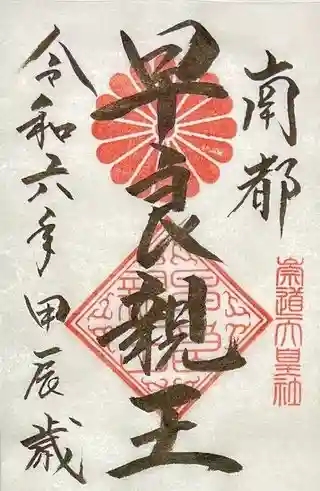 南都
崇道天皇社
早良親王
令和六年 甲辰歳